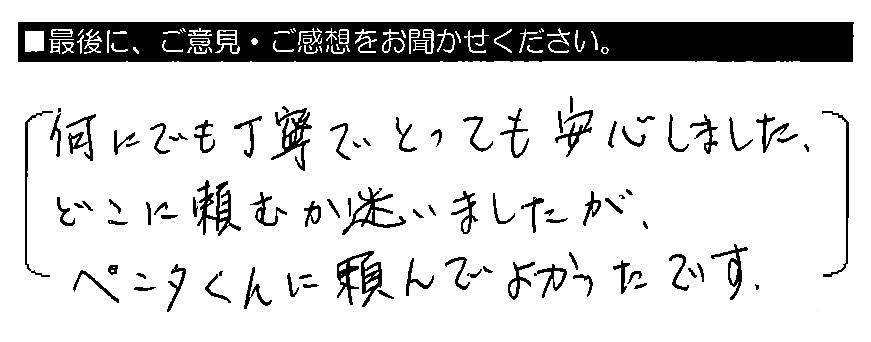 ■最後に、ご意見・ご感想をお聞かせください。
何にでも丁寧でとっても安心しました、
どこに頼むか迷いましたが、
ペンタくんに頼んでよかったです.